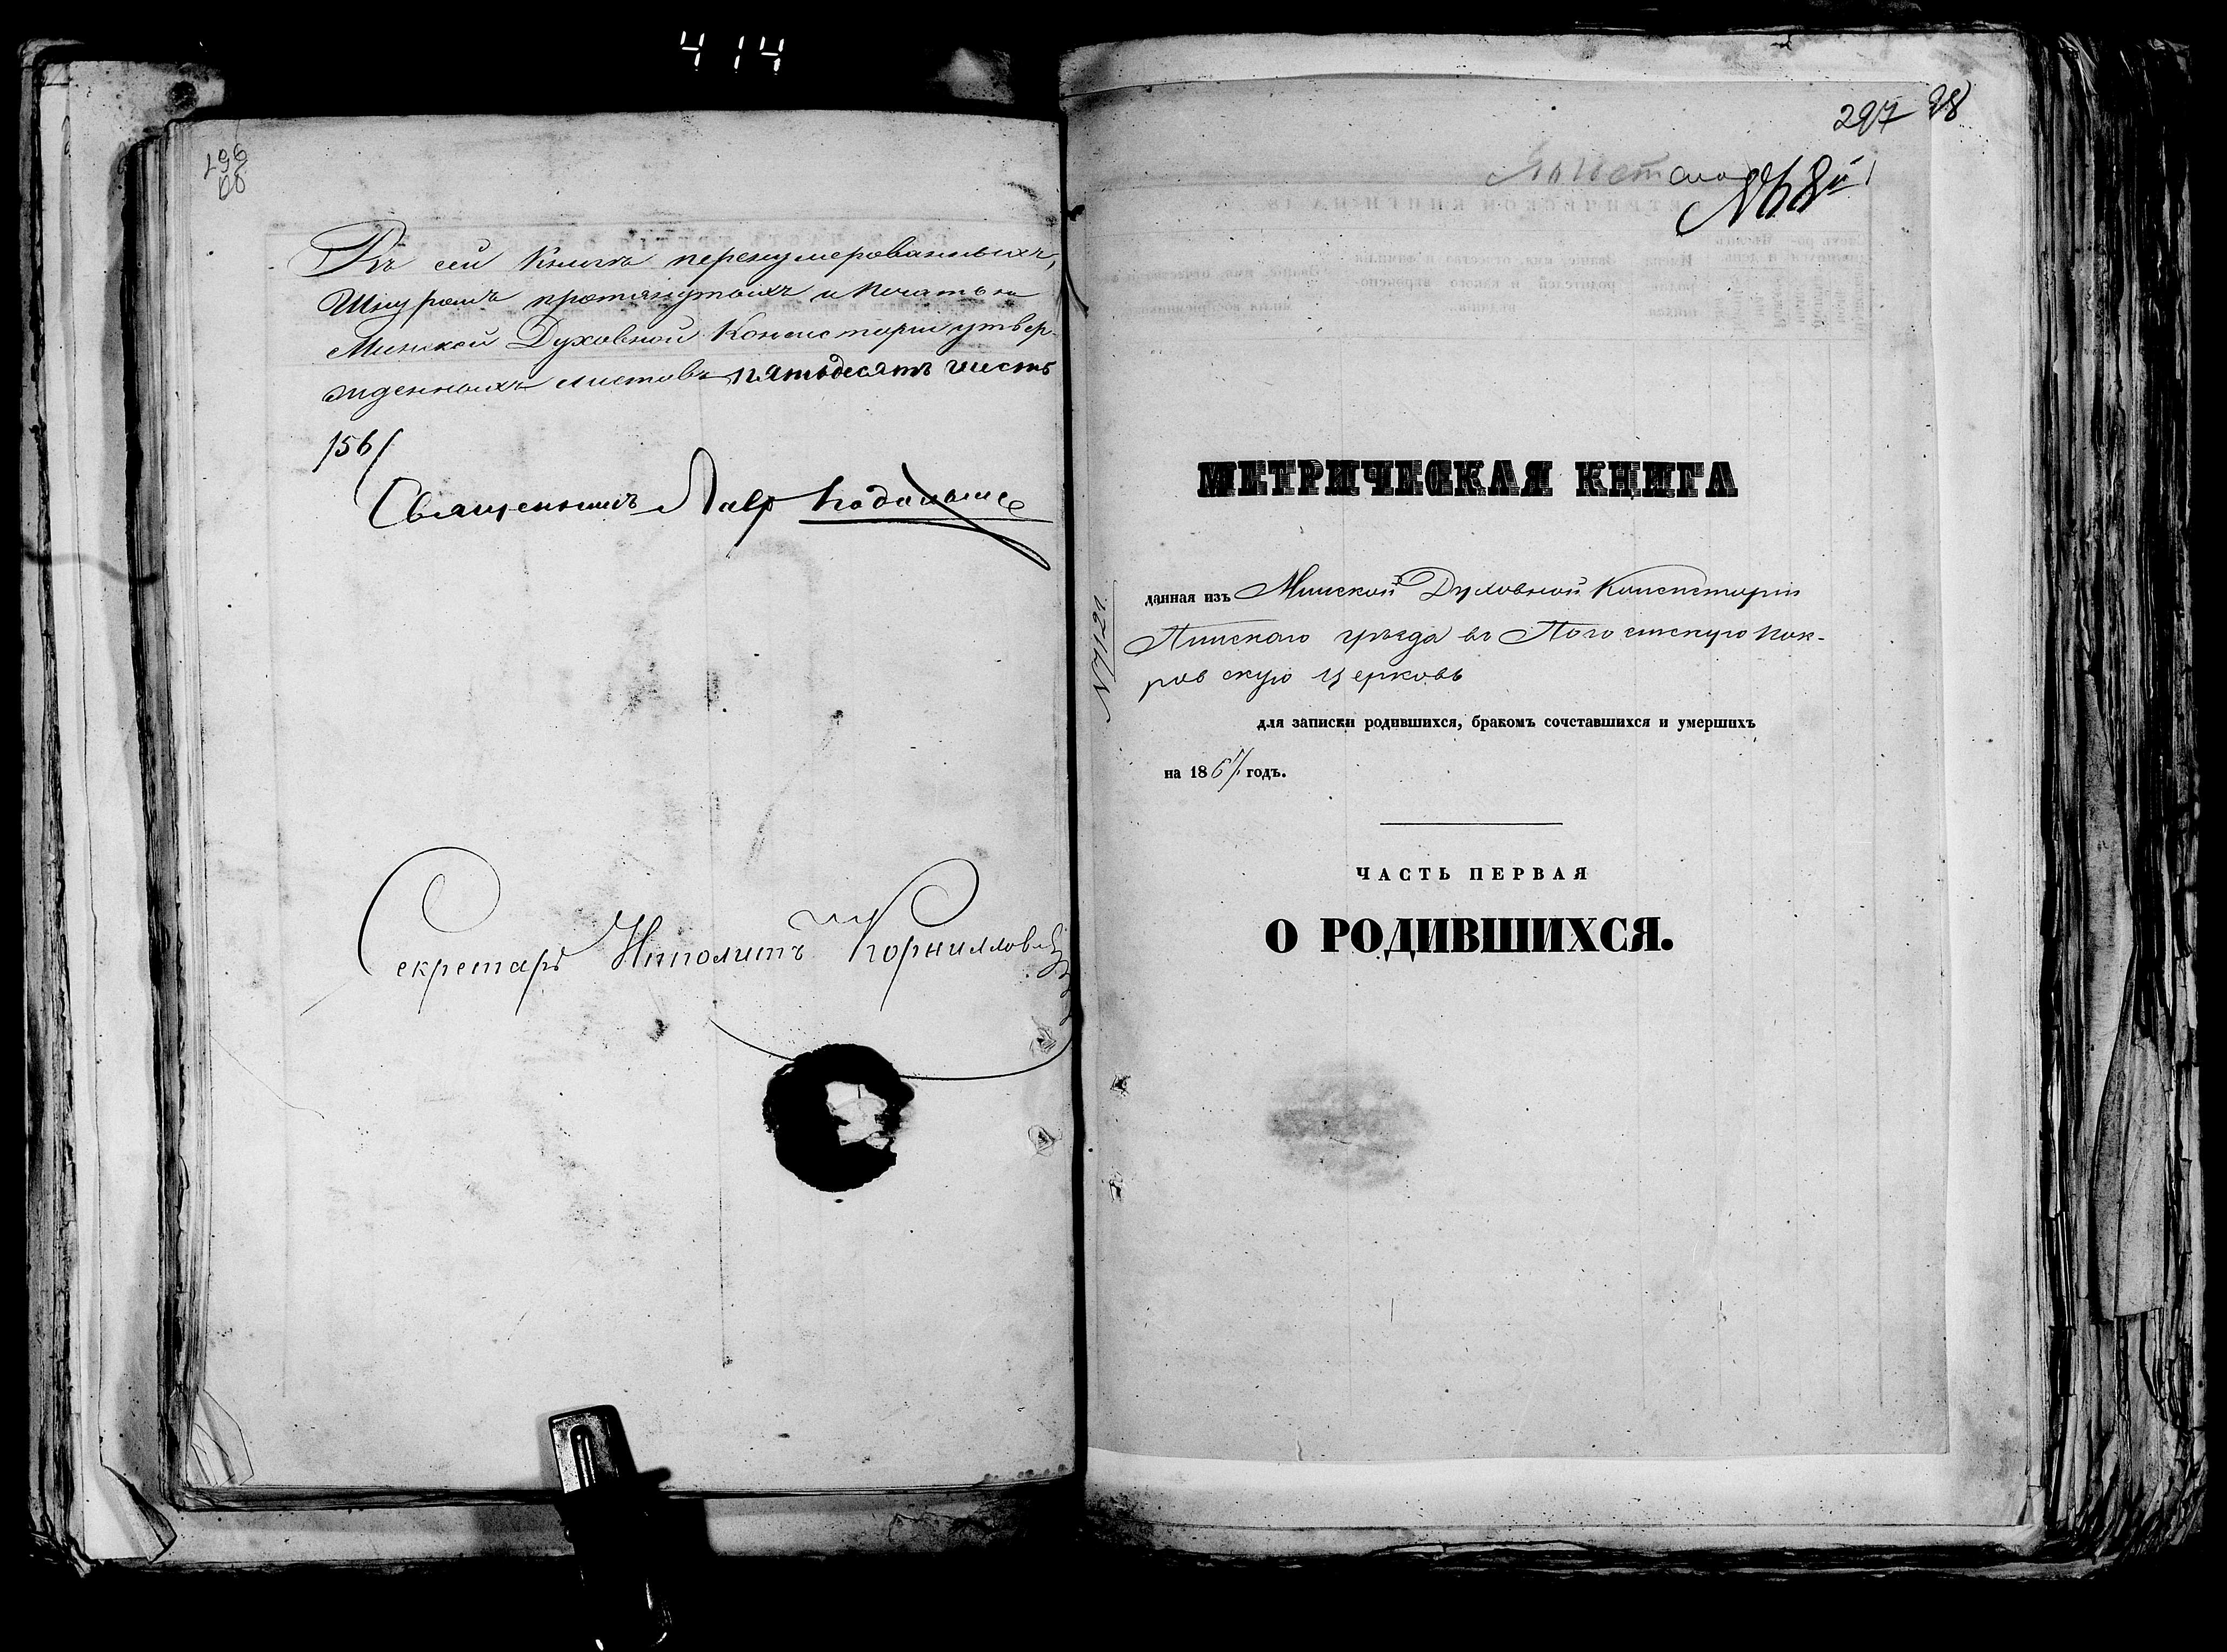 414
Въ сей Книгѣ перенумерованныхъ,
Шнуромъ протянутыхъ и печатью
Минской Духовной Консисторіи утвер-
жденныхъ листовъ пятьдесятъ шесть
/56/
Священникъ Лавр
Секретарь Ипполитъ Корниллов
297 98
№ 8й
МЕТРИЧЕСКАЯ КНИГА
данная изъ Минской Духовной Консисторіи
Пинскаго уѣзда въ Погостскую Пок-
ровскую Церковь
для записки родившихся, бракомъ сочетавшихся и умершихъ
на 186 годъ.
ЧАСТЬ ПЕРВАЯ
О РОДИВШИХСЯ.
№ 7121